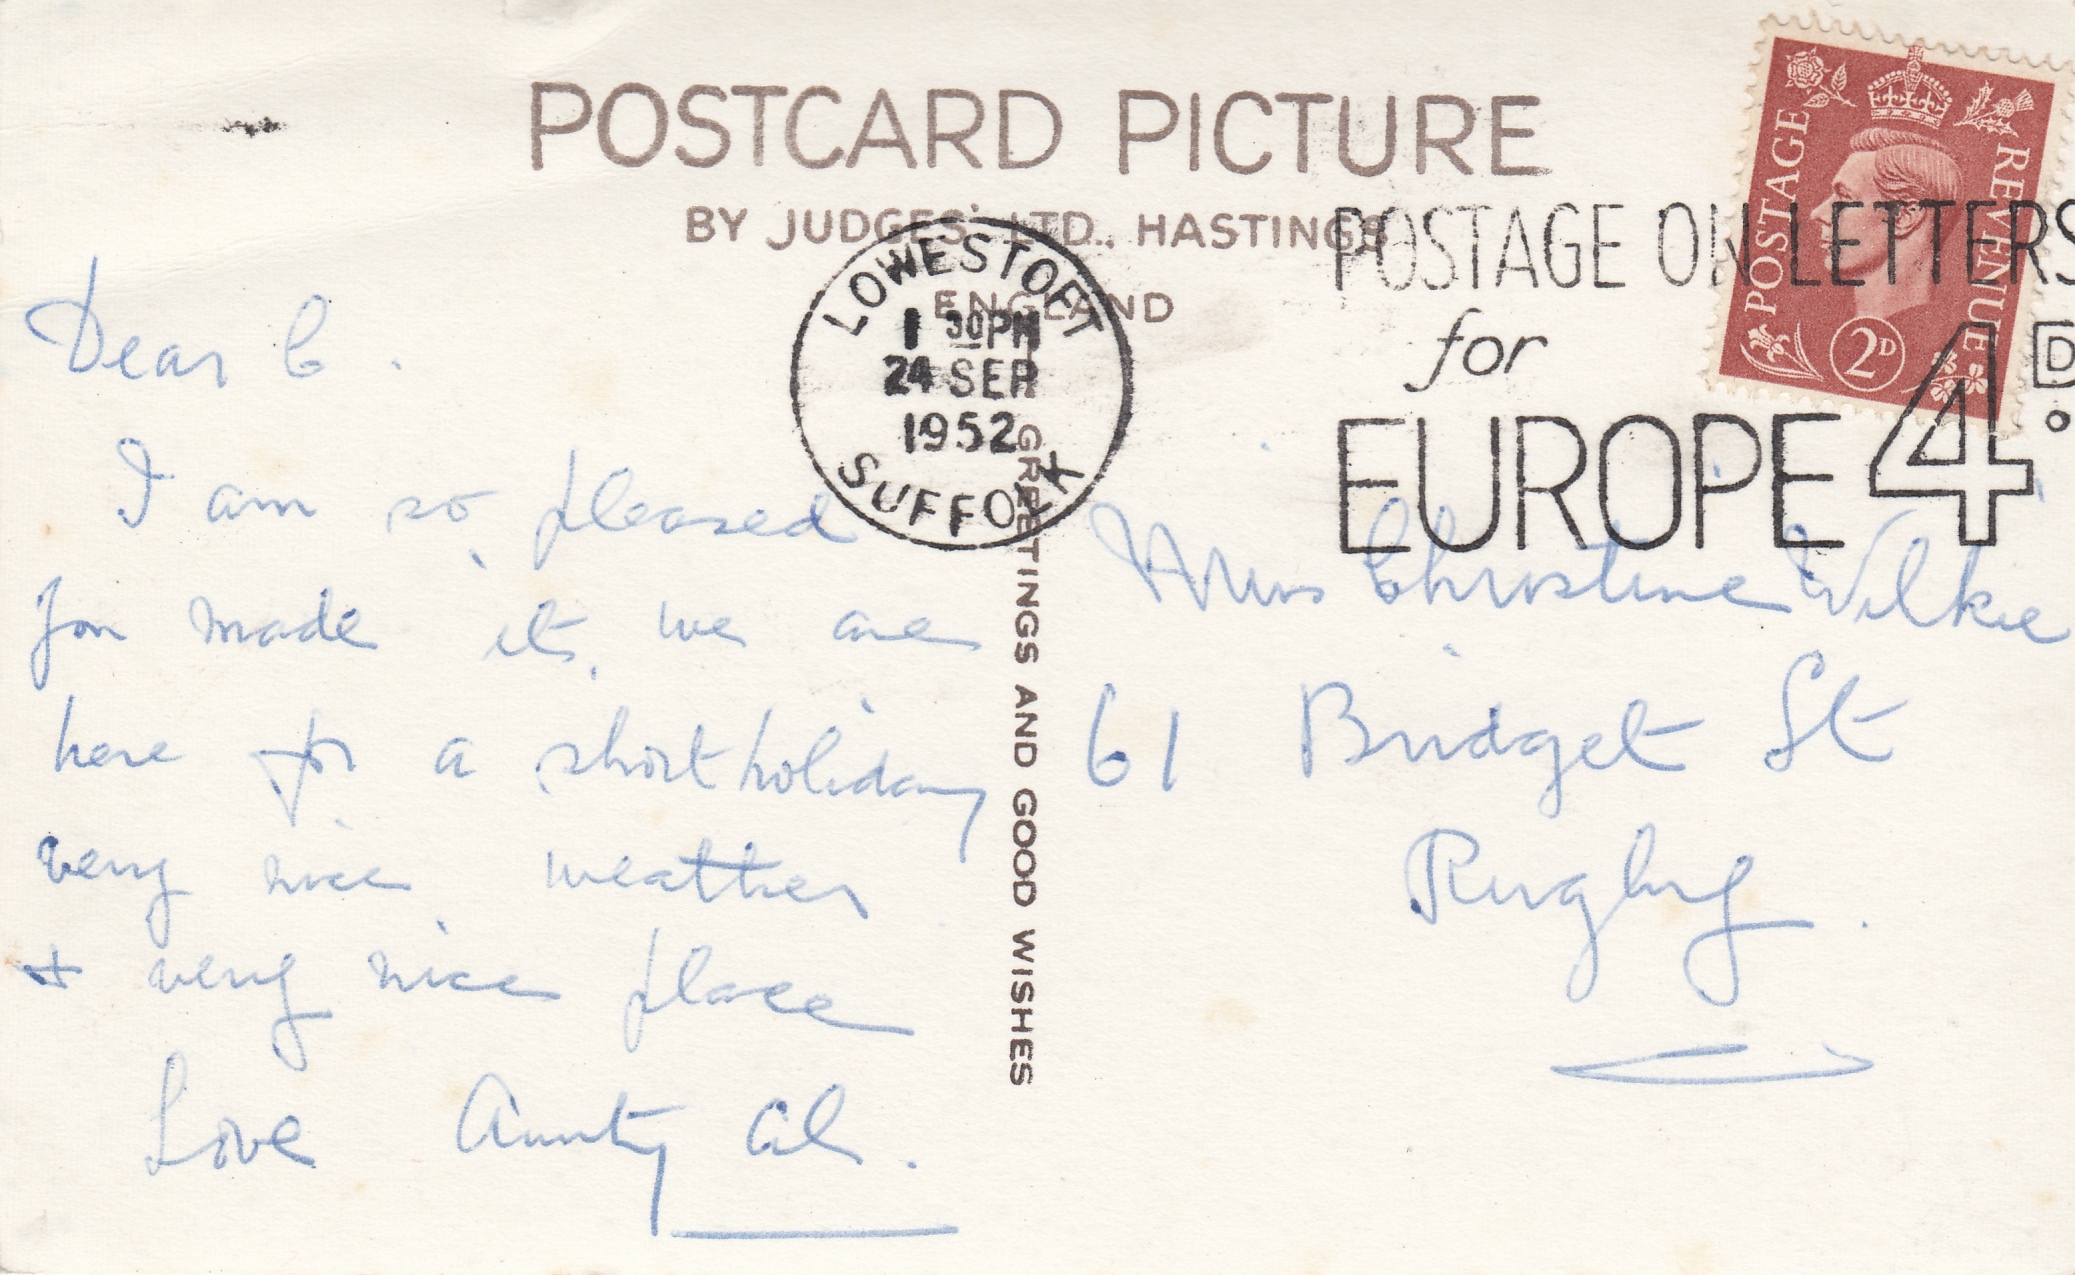 POSTCARD PICTURE
BY JUDGES' LTD., HASTINGS
ENGLAND
LOWESTOFT
1 30PM
24 SEP
1952
SUFFOLK
POSTAGE ON LETTERS
for
EUROPE 4D.
POSTAGE
REVENUE
2D
GREETINGS AND GOOD WISHES
Dear C.
I am so pleased
you made it, we are
here for a short holiday
very nice weather
+ very nice place
Love Aunty
Miss Christine Wilkie
61 Bridget St
Rugby.